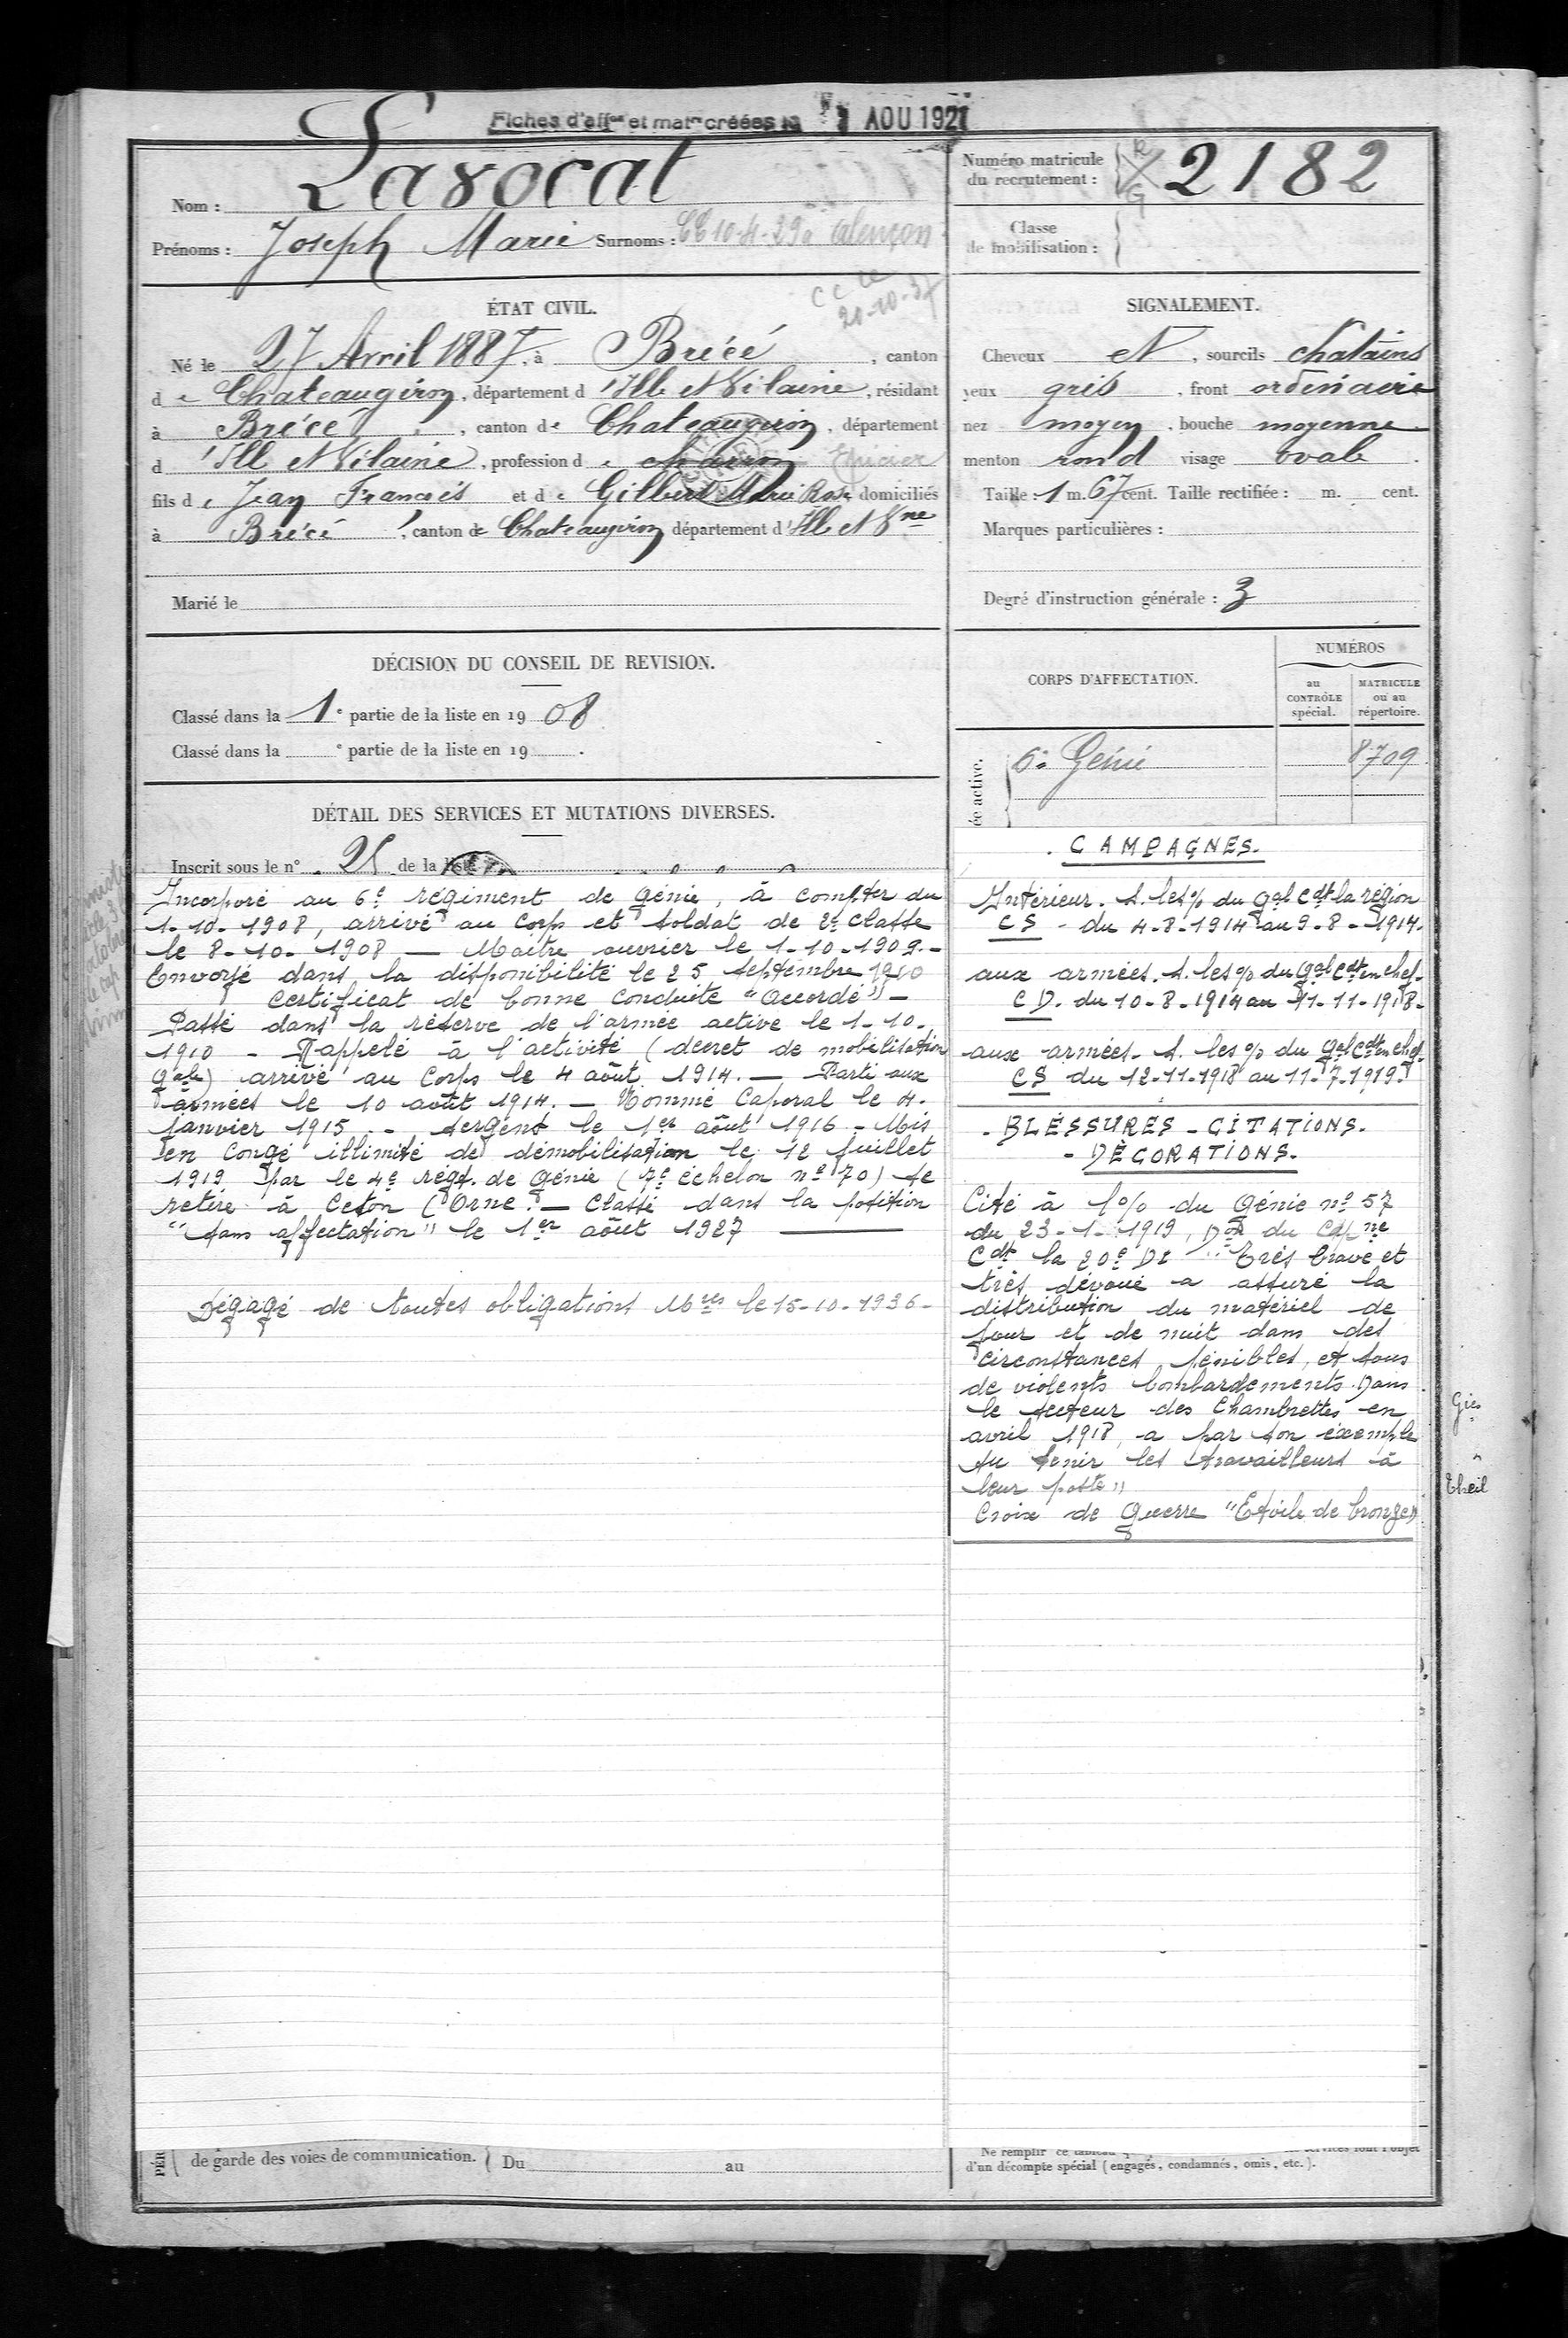 Fiches d'affon et matr créées le 1 AOU 1927
Nom : Lavocat
Prénoms : Joseph Marie Surnoms : CC 10-4-29 à Alençon
Numéro matricule
du recrutement : 2182
Classe
de mobilisation :
ÉTAT CIVIL.
Né le 27 Avril 1887, à Brécé, canton
de Chateaugiron, département d'Ille et Vilaine, résidant
à Brécé, canton de Chateaugiron, département
d'Ille et Vilaine, profession de charron
fils de Jean Francois et de Gilbert Marie Rose domiciliés
à Brécé, canton de Chateaugiron département d'Ille et Vne
Marié le
SIGNALEMENT.
Cheveux et, sourcils chatains
yeux gris, front ordinaire
nez moyen, bouche moyenne
menton rond visage ovale.
Taille : 1 m. 67 cent. Taille rectifiée : m. cent.
Marques particulières :
Degré d'instruction générale : 3
DÉCISION DU CONSEIL DE REVISION.
Classé dans la 1e partie de la liste en 1908
Classé dans la e partie de la liste en 19 .
CORPS D'AFFECTATION.
NUMÉROS
au
CONTRÔLE
spécial.
MATRICULE
ou au
répertoire.
ée active.
6e Génie 8709
DÉTAIL DES SERVICES ET MUTATIONS DIVERSES.
Inscrit sous le n° 25 de la liste
Incorporé au 6e régiment de Génie, à compter du
1-10-1908, arrivé au Corps et soldat de 2e classe
le 8-10-1908 — Maître ouvrier le 1-10-1909.-
Envoyé dans la disponibilité le 25 septembre 1910
Certificat de bonne conduite "Accordé" -
Passé dans la réserve de l'armée active le 1-10-
1910 - Rappelé à l'activité (décret de mobilisation
Gale) arrivé au Corps le 4 août 1914. — Parti aux
armées le 10 août 1914. — Nommé Caporal le 4.
janvier 1915. - sergent le 1er août 1916 - Mis
en Congé illimité de démobilisation le 12 juillet
1919 par le 4e régt. de Génie (7e échelon n° 70) se
retire à Ceton (Orne. — Classé dans la position
"sans affectation" le 1er août 1927 —
Dégagé de toutes obligations Mres le 15-10-1936-
. CAMPAGNES.
Intérieur. S. les % du Gal Cdt la région
CS - du 4-8-1914 au 9-8-1914.
aux armées. S. les % du Gal Cdt en chef-
C D. du 10-8-1914 au 11-11-1918-
aux armées. S. les % du Gal Cdt en chef-
CS du 12-11-1918 au 11-7-1919.
- BLÉSSURES - CITATIONS.
- DÉCORATIONS.
Cité à l'o% du Génie n° 57
du 23-1-1919, Don du Capne
Cdt la 20e De "Très brave et
très dévoué a assuré la
distribution du matériel de
jour et de nuit dans des
circonstances pénibles, et sous
de violents bombardements. Dans
le secteur des Chambrettes en
avril 1918, a par son exemple
su tenir les travailleurs à
leur poste"
Croix de Guerre "Etoile de bronze"
Theil
de garde des voies de communication. Du au
Ne remplir ce tableau
d'un décompte spécial (engagés, condamnés, omis, etc.).